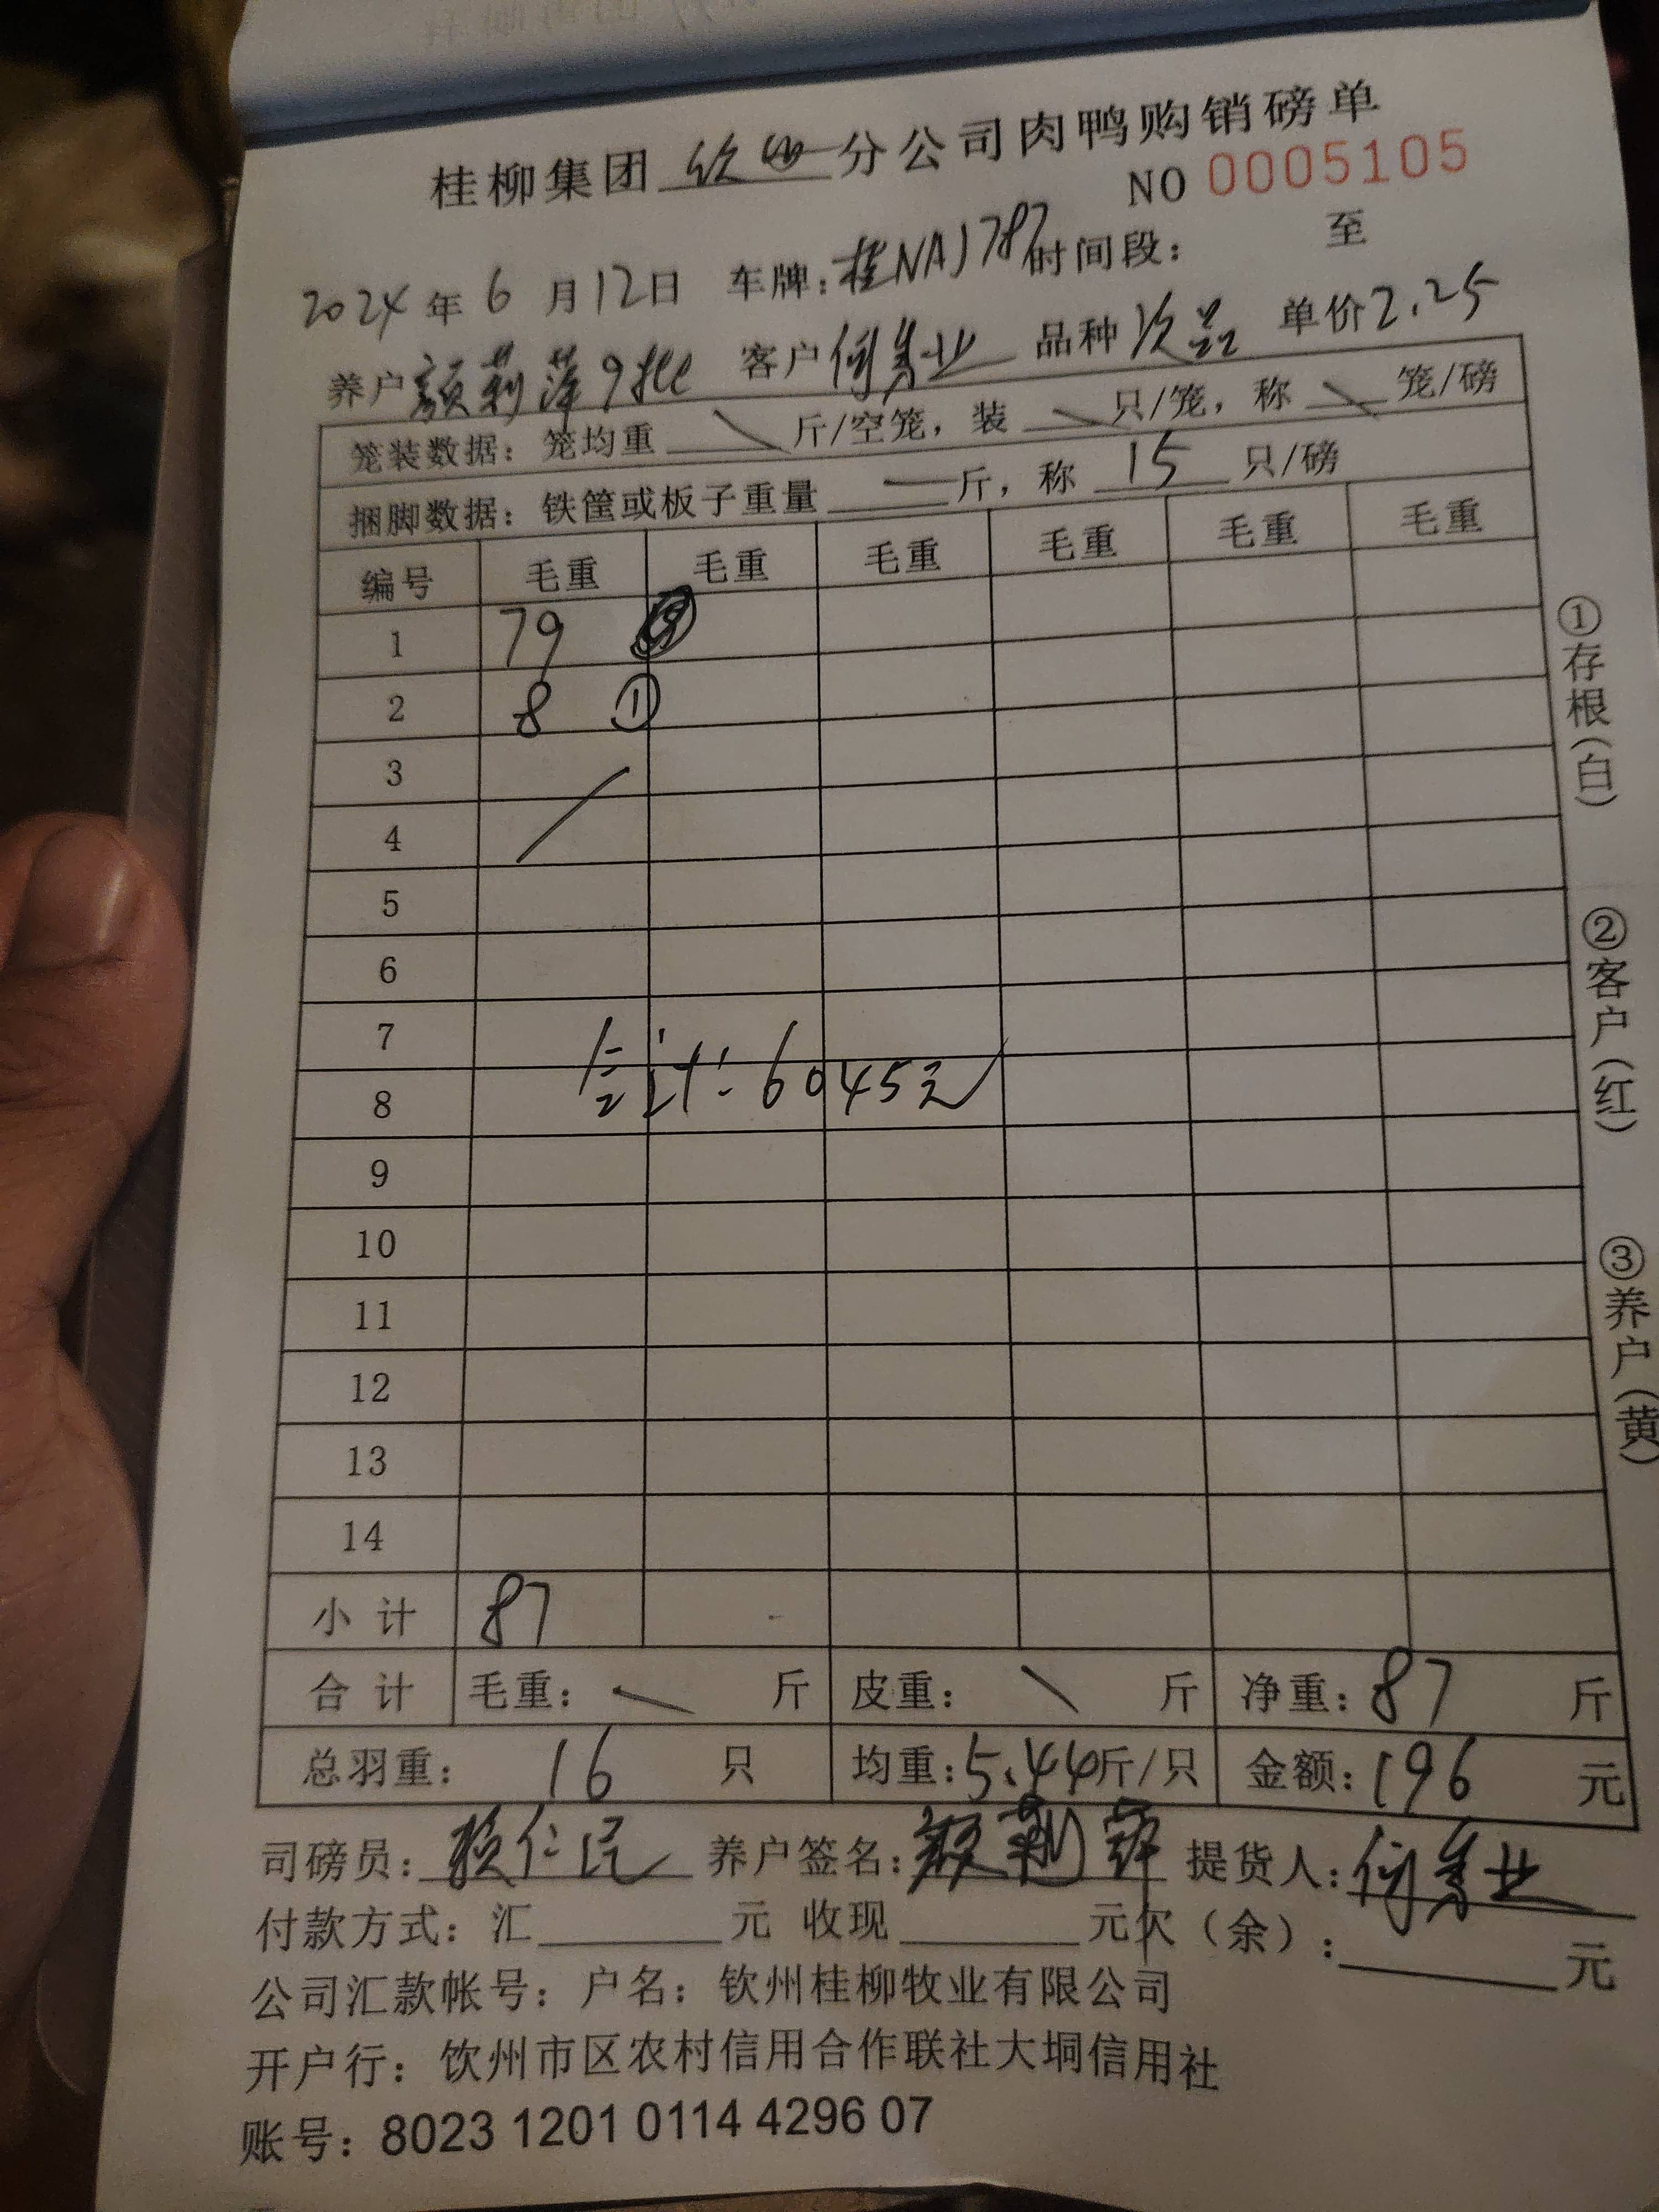 桂柳集团 钦州 分公司肉鸭购销磅单
NO 0005105
2024 年 6 月 12 日 车牌：桂NAJ787 时间段： 至
养户 颜莉萍 9批 客户 何孝业 品种 次品 单价 2.25
笼装数据：笼均重 \ 斤/空笼，装 \ 只/笼，称 \ 笼/磅
捆脚数据：铁筐或板子重量 — 斤，称 15 只/磅
编号 毛重 毛重 毛重 毛重 毛重 毛重
1 79
2 8 ①
3
4
5
6
7
8 合计：6045元
9
10
11
12
13
14
小计 87
合计 毛重： \ 斤 皮重： \ 斤 净重：87 斤
总羽重： 16 只 均重：5.44斤/只 金额：196 元
司磅员：赖仁民 养户签名：颜莉萍 提货人：何孝业
付款方式：汇 元 收现 元欠（余）： 元
公司汇款帐号：户名：钦州桂柳牧业有限公司
开户行：钦州市区农村信用合作联社大垌信用社
账号：8023 1201 0114 4296 07
①存根(白)
②客户(红)
③养户(黄)